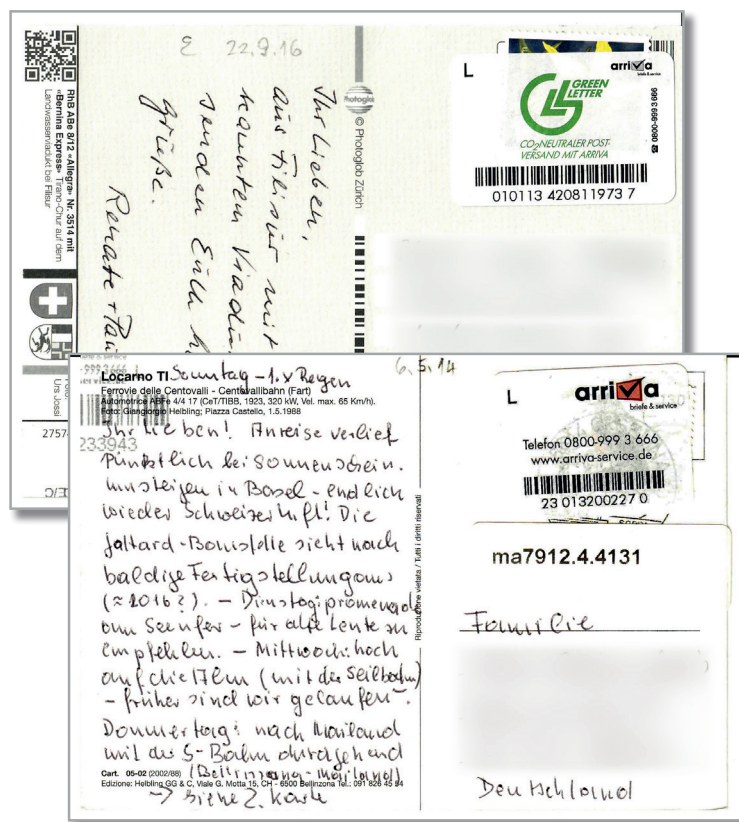 E 22.9.16
RhB ABe 8/12 «Allegra» Nr. 3514 mit
«Bernina Express» Tirano-Chur auf dem
Landwasserviadukt bei Filisur
Ihr Lieben,
aus Filisur mit
kanntem Viadu
senden Euch h
Grüße.
Renate + Pau
Photoglob
© Photoglob Zürich
Urs Jossi
L
arriva
briefe & service
GREEN
LETTER
CO2NEUTRALER POST-
VERSAND MIT ARRIVA
0800-999 3 666
010113 420811973 7
2757
233943
Locarno TI Sonntag - 1. x Regen
6.5.14
Ferrovie delle Centovalli - Centovallibahn (Fart)
Automotrice ABFe 4/4 17 (CeT/TIBB, 1923, 320 kW, Vel. max. 65 Km/h).
Foto: Giangiorgio Helbling; Piazza Castello, 1.5.1988
Ihr Lieben! Anreise verlief
pünktlich bei Sonnenschein.
Umsteigen in Basel - endlich
wieder Schweizer Luft! Die
Gotthard-Baustelle sieht nach
baldige Fertigstellung aus
(≈ 2016?). - Dienstag: promenad
am Seeufer - für alte Leute zu
empfehlen. - Mittwoch: hoch
auf die Alm (mit der Seilbahn)
- früher sind wir gelaufen -.
Donnertag: nach Mailand
mit der S-Bahn durchgehend
(Bellinzona - Mailand)
Cart. 05-02 (2002/88)
Edizione: Helbling GG & C, Viale G. Motta 15, CH - 6500 Bellinzona Tel.: 091 826 45 54
→ siehe 2. Karte
Riproduzione vietata / Tutti i diritti riservati
L
arriva
briefe & service
Telefon 0800-999 3 666
www.arriva-service.de
23 013200227 0
ma7912.4.4131
Familie
Deutschland